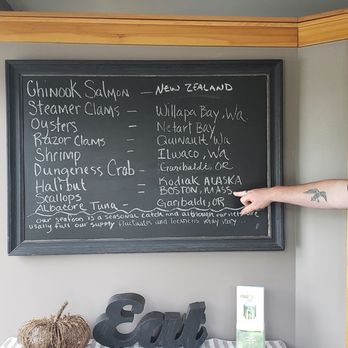 Chinook Salmon — New Zealand
Steamer Clams — Willapa Bay, Wa.
Oysters — Netart Bay
Razor Clams — Quinault Wa
Shrimp — Ilwaco, Wa
Dungeness Crab — Garibaldi, OR
Halibut — Kodiak ALASKA
Scallops — BOSTON, MASS
Albacore Tuna — Garibaldi, OR
Our seafood is a seasonal catch and although our is are
usally full our supply fluctuates and locations may vary
Eat